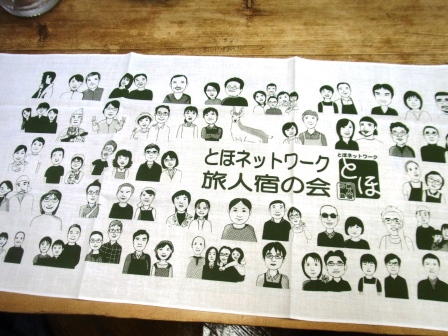 とほネットワーク
旅人宿の会
とほネットワーク
とほ